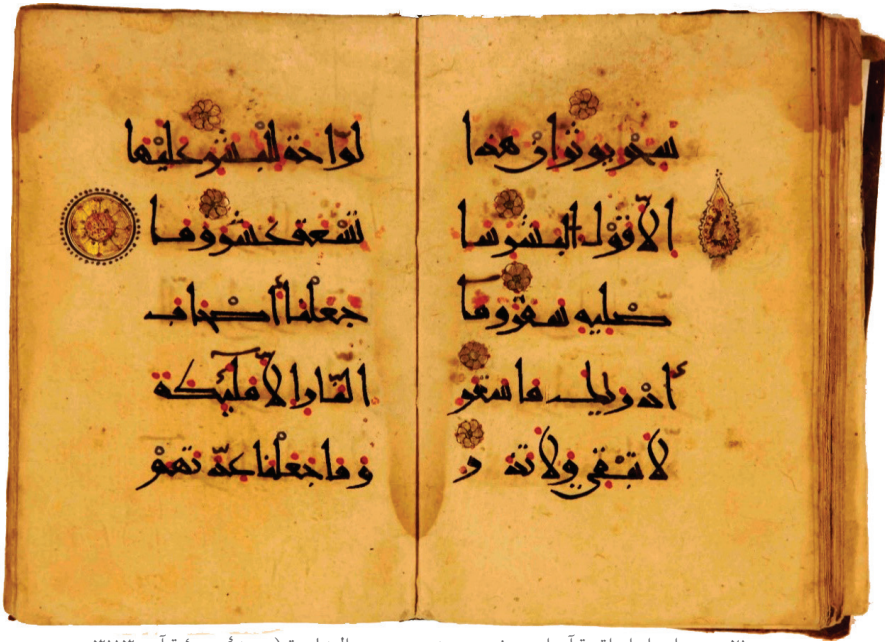 سحر يؤثر إن هذا
إلا قول البشر سأ
صليه سقر وما
أدريك ما سقر
لا تبقي ولا تذر
لواحة للبشر عليها
تسعة عشر وما
جعلنا أصحاب
النار إلا ملئكة
وما جعلنا عدتهم